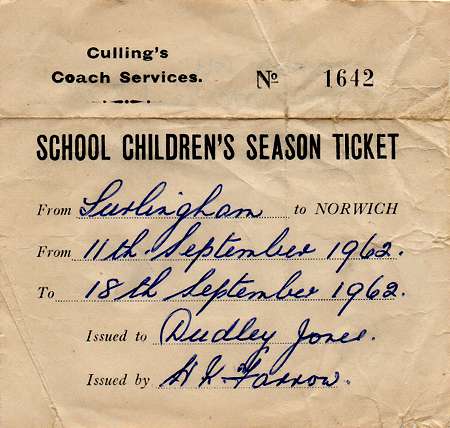 Culling's
Coach Services.
No 1642
SCHOOL CHILDREN'S SEASON TICKET
From Surlingham to NORWICH
From 11th September 1962.
To 18th September 1962.
Issued to Dudley Jones.
Issued by H K Farrow.